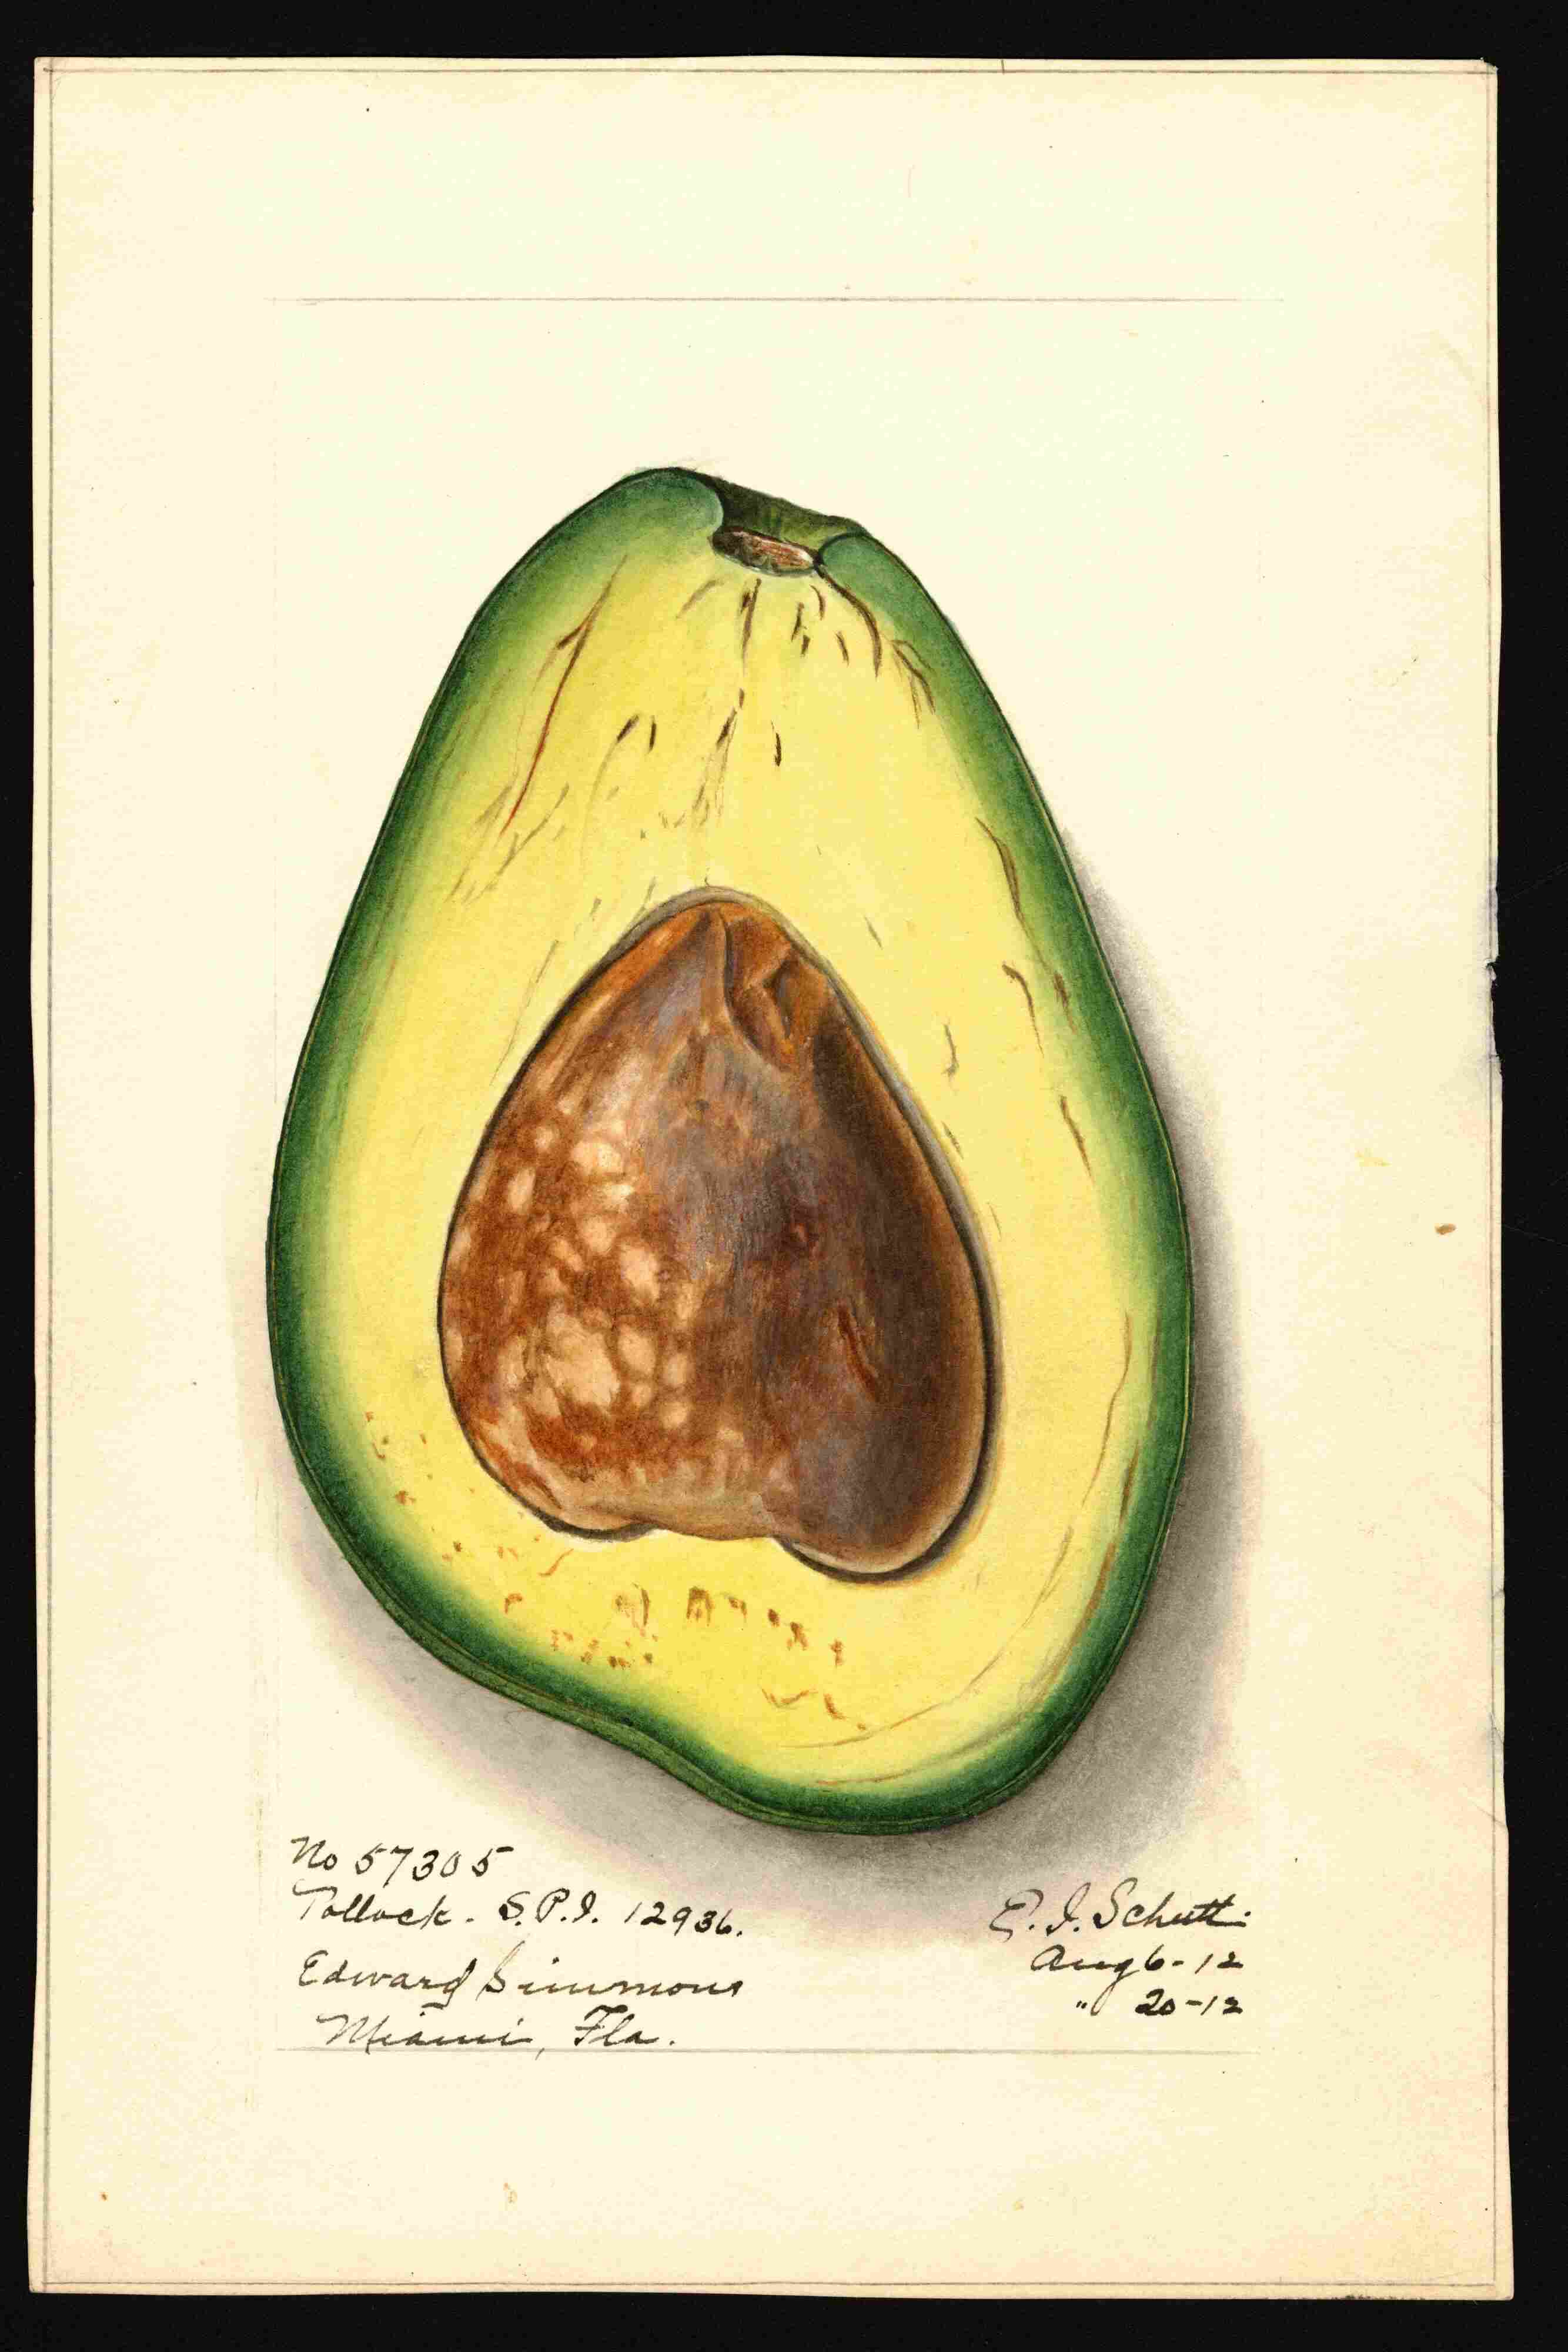 No 57305
Pollock. S.P.I. 12936.
Edward Simmons
Miami, Fla.
E. I. Schutt.
Aug 6-12
" 20-12